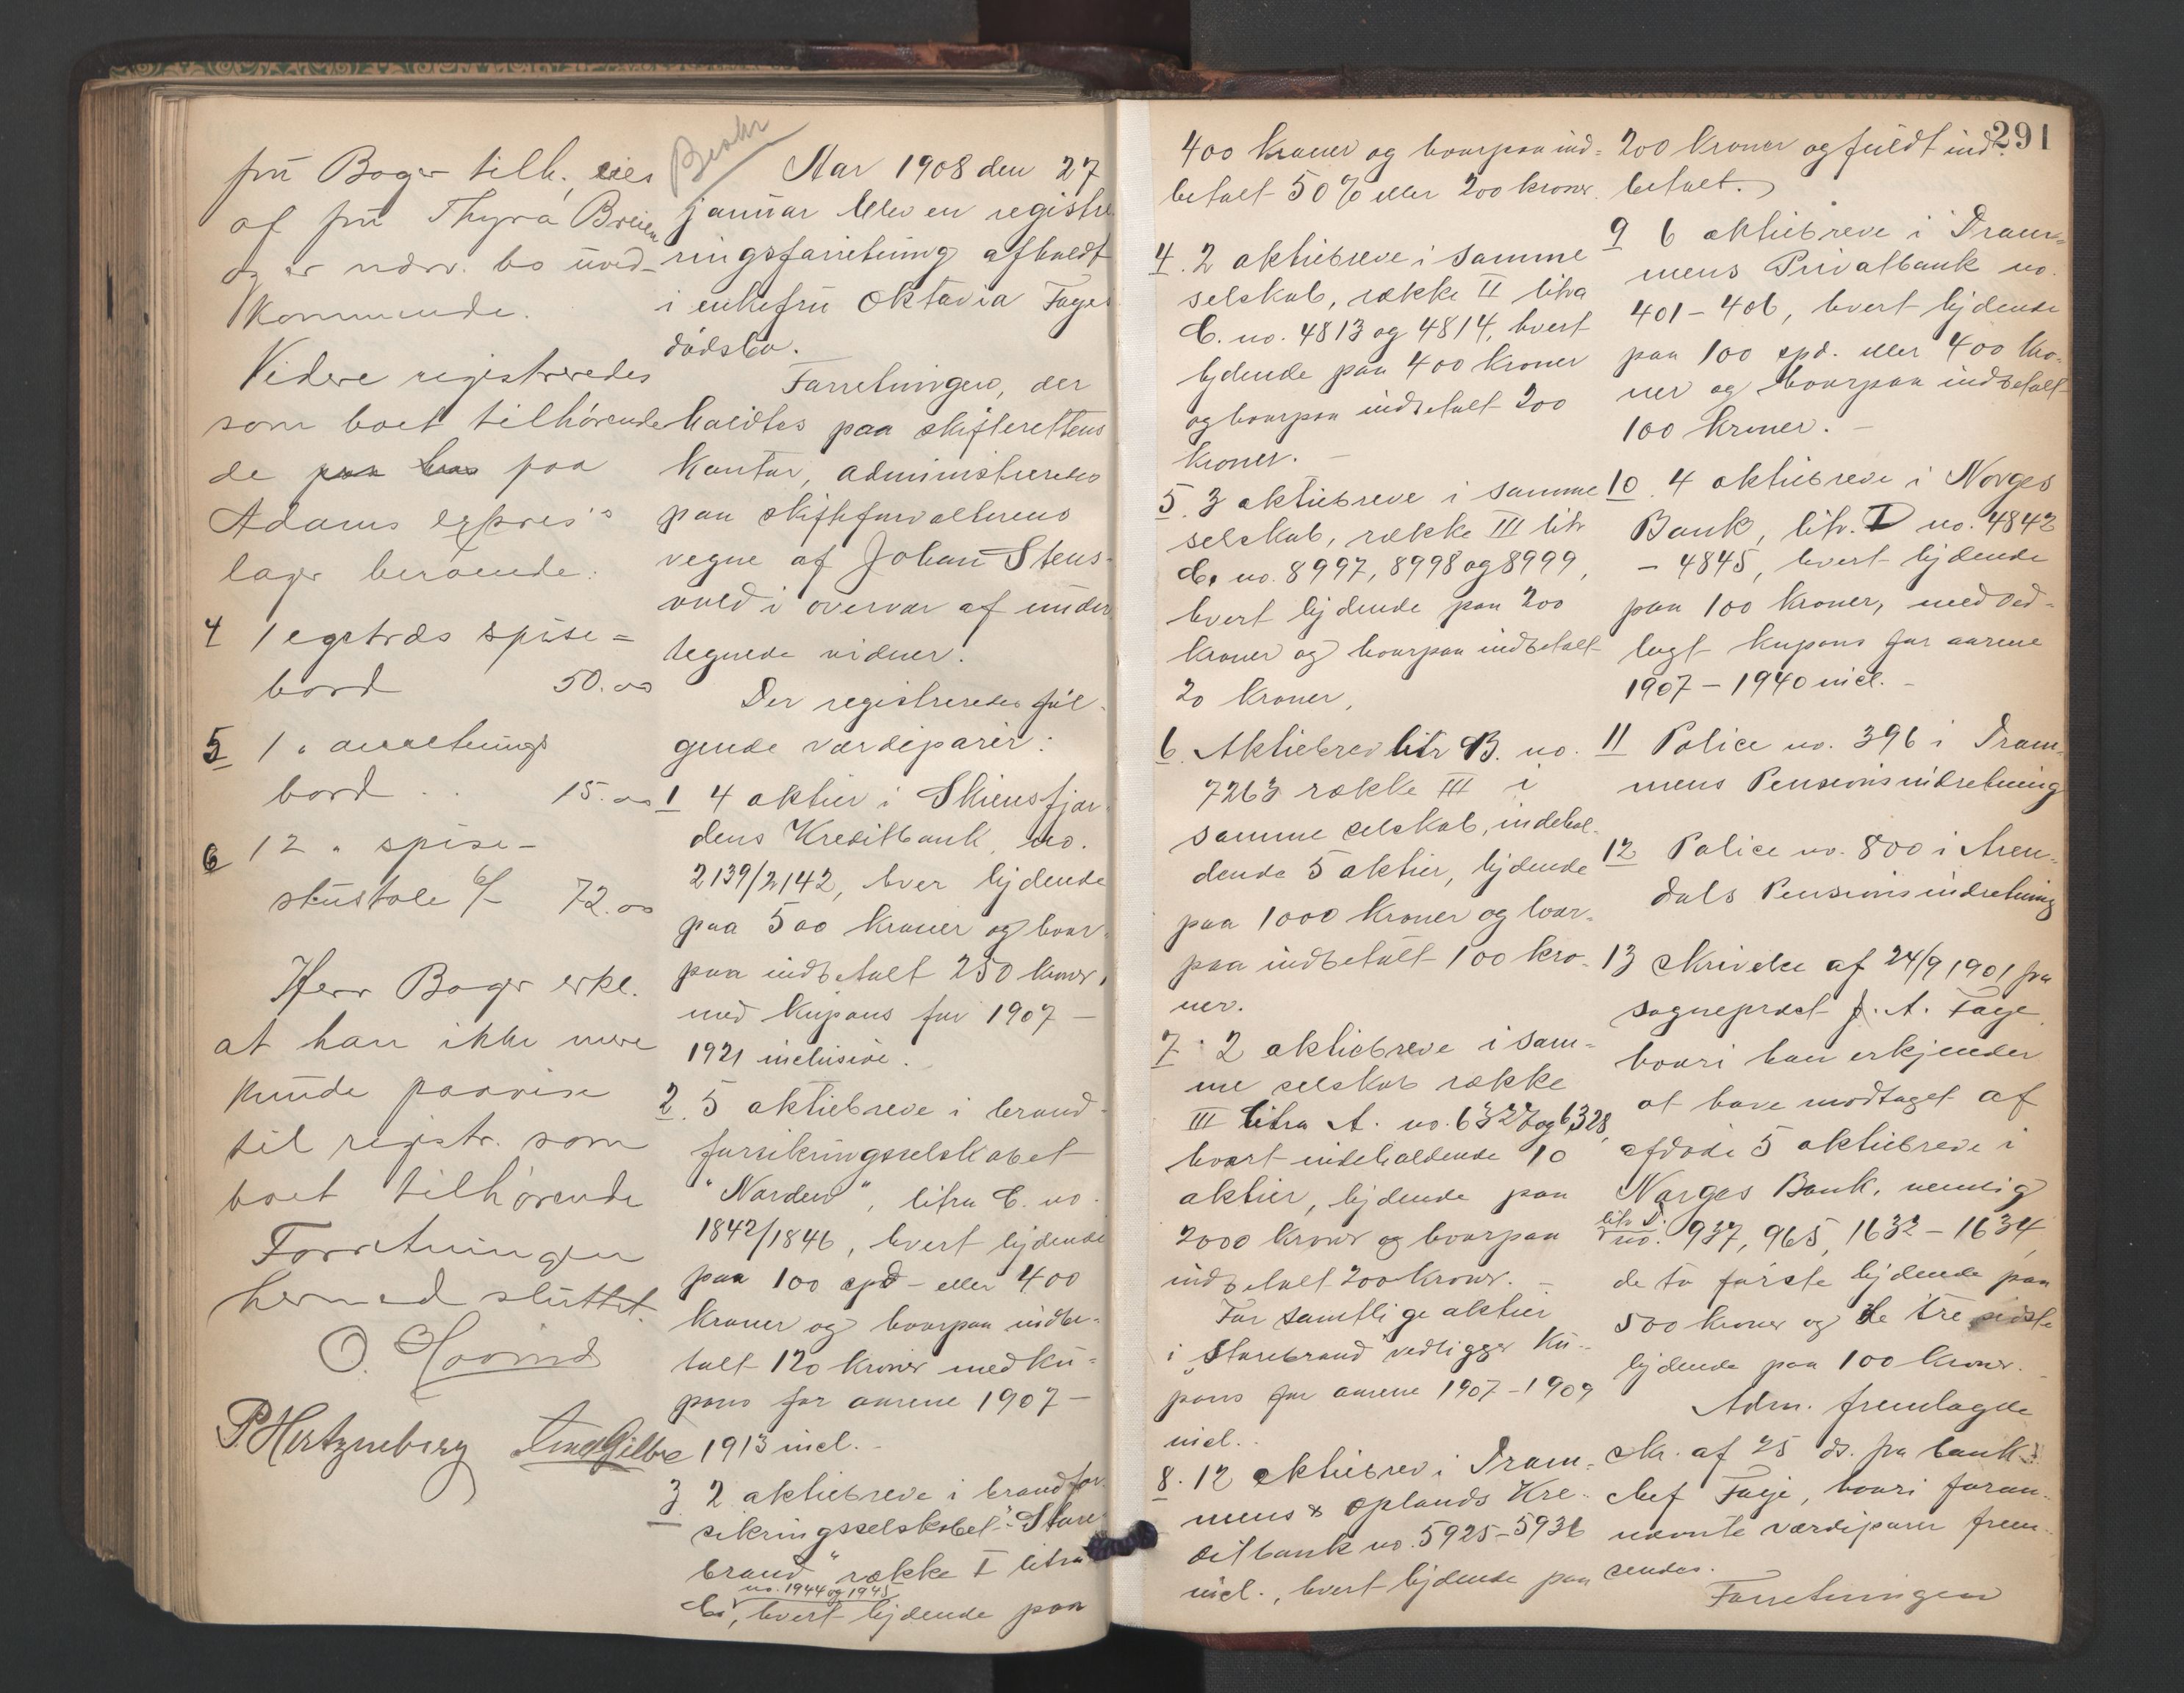 frü Boger tilh., eies
af frü Thyra Breien
og er nærv. bo uved-
kommende.
Videre registreredes
som boet tilhørende
de paa hos paa
Adams express's
lager beroende:
4 1 egetræs spise=
bord 50.00
5 1 " anretnings
bord . . 15.00
6 12 " spise-
stustole 6/- 72.00
Herr Boger erkl.
at han ikke mere
kunde paavise
til registr. som
boet tilhørende
Forretningen
hermed sluttet.
P. Hertzneberg
Aar 1908 den 27
januar blev en registre
ringsforretning afholdt
i enkefrü Oktavia Fayes
dödsbo.
Forretningen, der
holdtes paa skifterettens
kontor, administreredes
paa skifteforvalterens
vegne af Johan Stens-
vold i overvær af under
tegnede vidner.
Der registreredes föl-
gende værdiparir:
1 4 aktier i Skiensfjor
dens Kreditbank, no.
2139/2142, hver lydende
paa 500 kroner og hvor-
paa indbetalt 250 kroner,
med kupons for 1907 -
1921 inclusive.
2. 5 aktiebreve i brand-
forsikringsselskabet
"Norden", litra C. no.
1842/1846, hvert lydende
paa 100 spd - eller 400
kroner og hvorpaa indbe-
talt 120 kroner med ku-
pons for aarene 1907 -
1913 incl. -
3 2 aktiebreve i brandfor
sikringsselskabet "Store
brand" række I litra
no. 1944 og 1945
C., hvert lydende paa
291
400 kroner og hvorpaa ind=
betalt 50% eller 200 kroner.
4. 2 aktiebreve i samme
selskab, række II litra
C. no. 4813 og 4814, hvert
lydende paa 400 kroner
og hvorpaa indbetalt 200
kroner. -
5. 3 aktiebreve i samme
selskab, række III litr
C. no. 8997, 8998 og 8999,
hvert lydende paa 200
kroner og hvorpaa indbetalt
20 kroner,
6. Aktiebrev litr B. no.
7263 række III i
samme selskab, indehol-
dende 5 aktier, lydende
paa 1000 kroner og hvor-
paa indbetalt 100 kro-
ner.
7. 2 aktiebreve i sam-
me selskab række
III litra A. no. 6327 og 6328,
hvert indeholdende 10
aktier, lydende paa
2000 kroner og hvorpaa
indbetalt 200 kroner. -
For samtlige aktier
i Storebrand vedligger ku-
pons for aarene 1907 - 1909
incl. -
8. 12 aktiebrev i Dram-
mens & Oplands Kre-
ditbank no. 5925 - 5936
incl., hvert lydende paa
200 kroner og fuldt ind-
betalt.
9 6 aktiebreve i Dram-
mens Privatbank no.
401 - 406, hvert lydende
paa 100 spd. eller 400 kro-
ner og hvorpaa indbetalt
100 kroner. -
10. 4 aktiebreve i Norges
Bank, litr. D no. 4842
- 4845, hvert lydende
paa 100 kroner, med ved-
lagt kupons for aarene
1907 - 1940 incl. -
11 Police no. 396 i Dram-
mens Pensionsindretning
12 Police no. 800 i Aren-
dals Pensionsindretning
13 Skrivelse af 24/9 1901 fra
sogneprest J. A. Faye,
hvori han erkjender
at have modtaget af
afdøde 5 aktiebreve i
Norges Bank, nemlig
litr D.
no. 937, 965, 1632 - 1634,
de to første lydende paa
500 kroner og de tre sidste
lydende paa 100 kroner.
Adm. fremlagde
skr. af 25 ds. fra bank-
chef Faye, hvori foran-
nævnte værdipapir frem-
sendes.
Forretningen